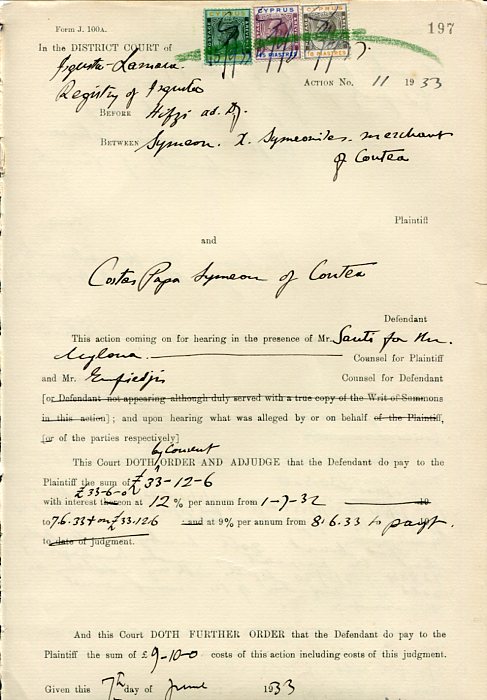 Form J. 100A.
197
CYPRUS CYPRUS
45 PIASTRES
In the DISTRICT COURT of
Famagusta-Larnaca.
Registry of Famagusta
ACTION No. 11 1933
BEFORE
BETWEEN Symeon. X. Symeonides. merchant
of Contea
Plaintiff
and
Costas Papa Symeon of Contea
Defendant
This action coming on for hearing in the presence of Mr. Santi for Mr.
Mylona. Counsel for Plaintiff
and Mr. Counsel for Defendant
[or Defendant not appearing although duly served with a true copy of the Writ of Summons
in this action]; and upon hearing what was alleged by or on behalf of the Plaintiff,
[or of the parties respectively]
by Consent
This Court DOTH ORDER AND ADJUDGE that the Defendant do pay to the
Plaintiff the sum of £33-12-6
£33-6-0
with interest thereon at 12 % per annum from 1-7-32 19
to 7.6.33 & on £33.12.6 and at 9% per annum from 8.6.33 to paymt. 19
to date of judgment.
And this Court DOTH FURTHER ORDER that the Defendant do pay to the
Plaintiff the sum of £ 9-10-0 costs of this action including costs of this judgment.
Given this 7th day of June 1933